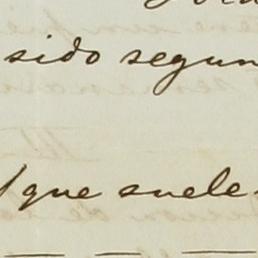 sido segun
que suele